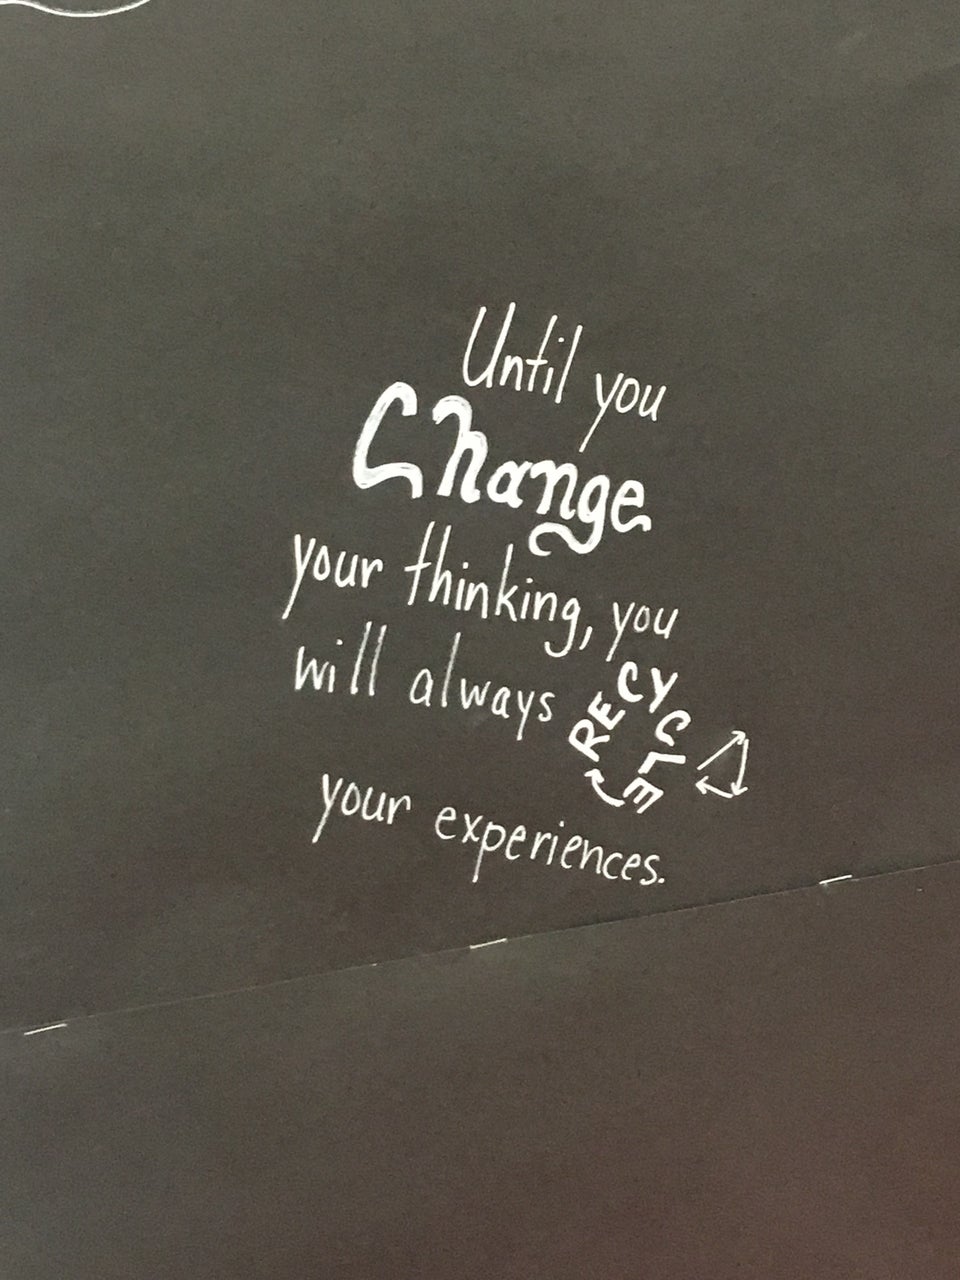 Until you
Change
your thinking, you
will always RECYCLE
your experiences.